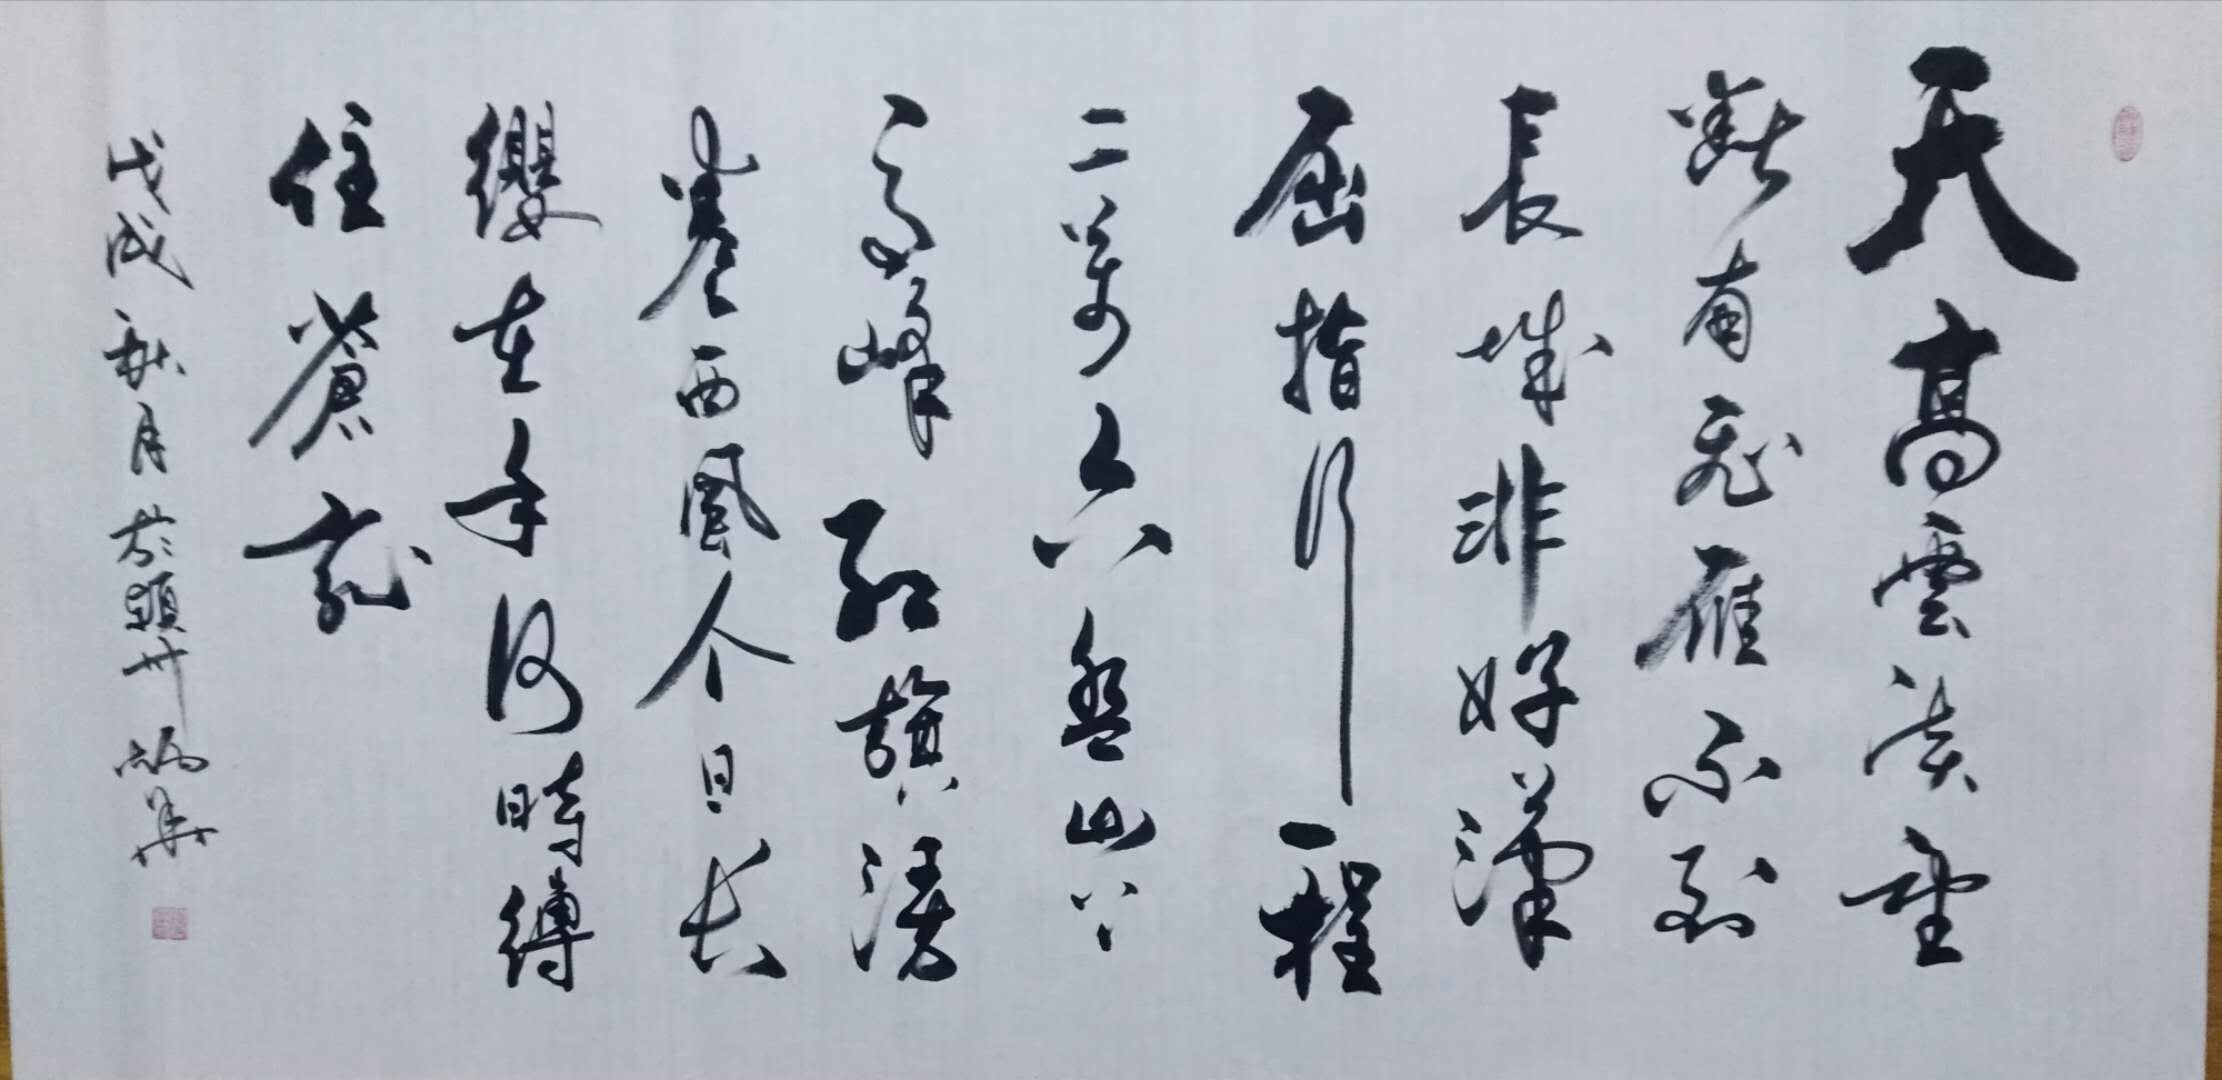 天高雲淡望
斷南飛雁不到
長城非好漢
屈指行程
二萬六盤山上
高峰紅旗漫
卷西風今日長
纓在手何時縛
住蒼龍
戊戌秋月於穎州炳華